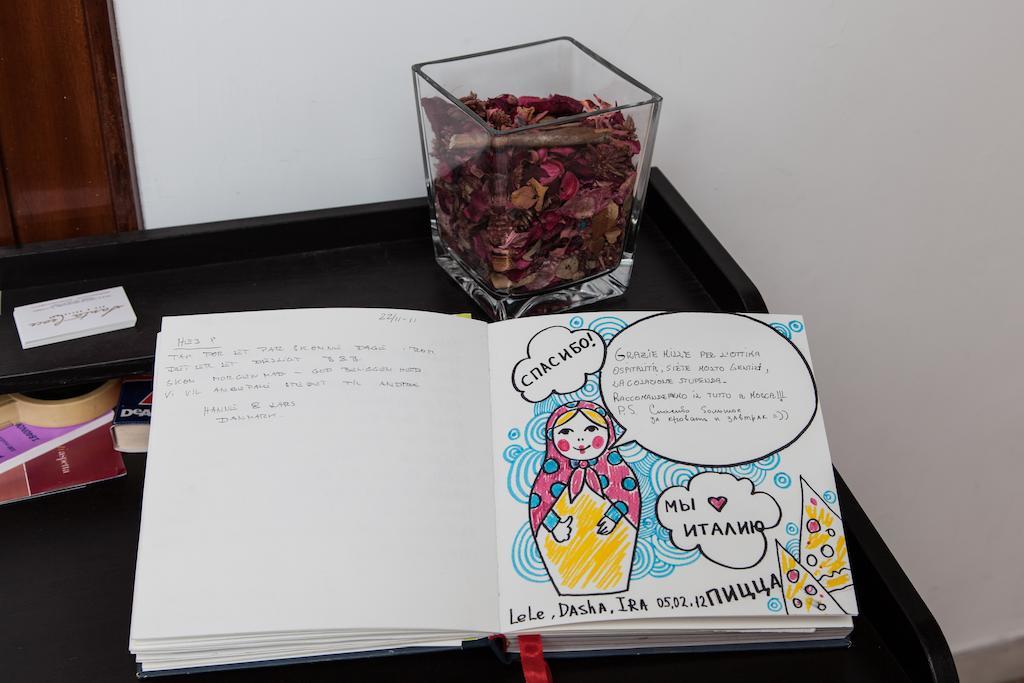 22/11-11
HEJ!
TAK FOR ET PAR SKØNNE DAGE I ROM
DET ER ET DEJLIGT B&B.
SKØN MORGENMAD - GOD BELIGGENHED
VI VIL ANBEFALE STEDET TIL ANDRE
HANNE & LARS
DANMARK.
СПАСИБО!
GRAZIE MILLE PER L'OTTIMA
OSPITALITÀ, SIETE MOLTO GENTILI,
LA COLAZIONE STUPENDA.
RACCOMANDEREMO IL TUTTO A MOSCA!!!
P.S. Спасибо большое
за кровать и завтрак =))
МЫ ♥
ИТАЛИЮ
ПИЦЦА
LeLe, DASHA, IRA 05.02.12